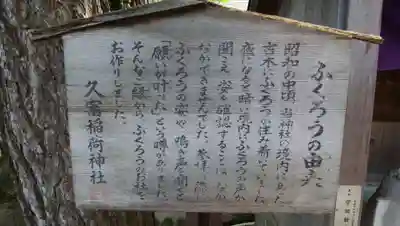 ふくろうの由来
昭和の中頃 当神社の境内にあった
古木にふくろうが住み着いていました。
夜になると暗い境内にふくろうの声が
聞こえ 姿を確認することは なか
なかできませんでした。参拝
ふくろうの姿や 鳴き声を聞くと
「願いが叶った」という噂がありました。
そんなご縁から、ふくろうのお社を
お作りしました。
久富稲荷神社